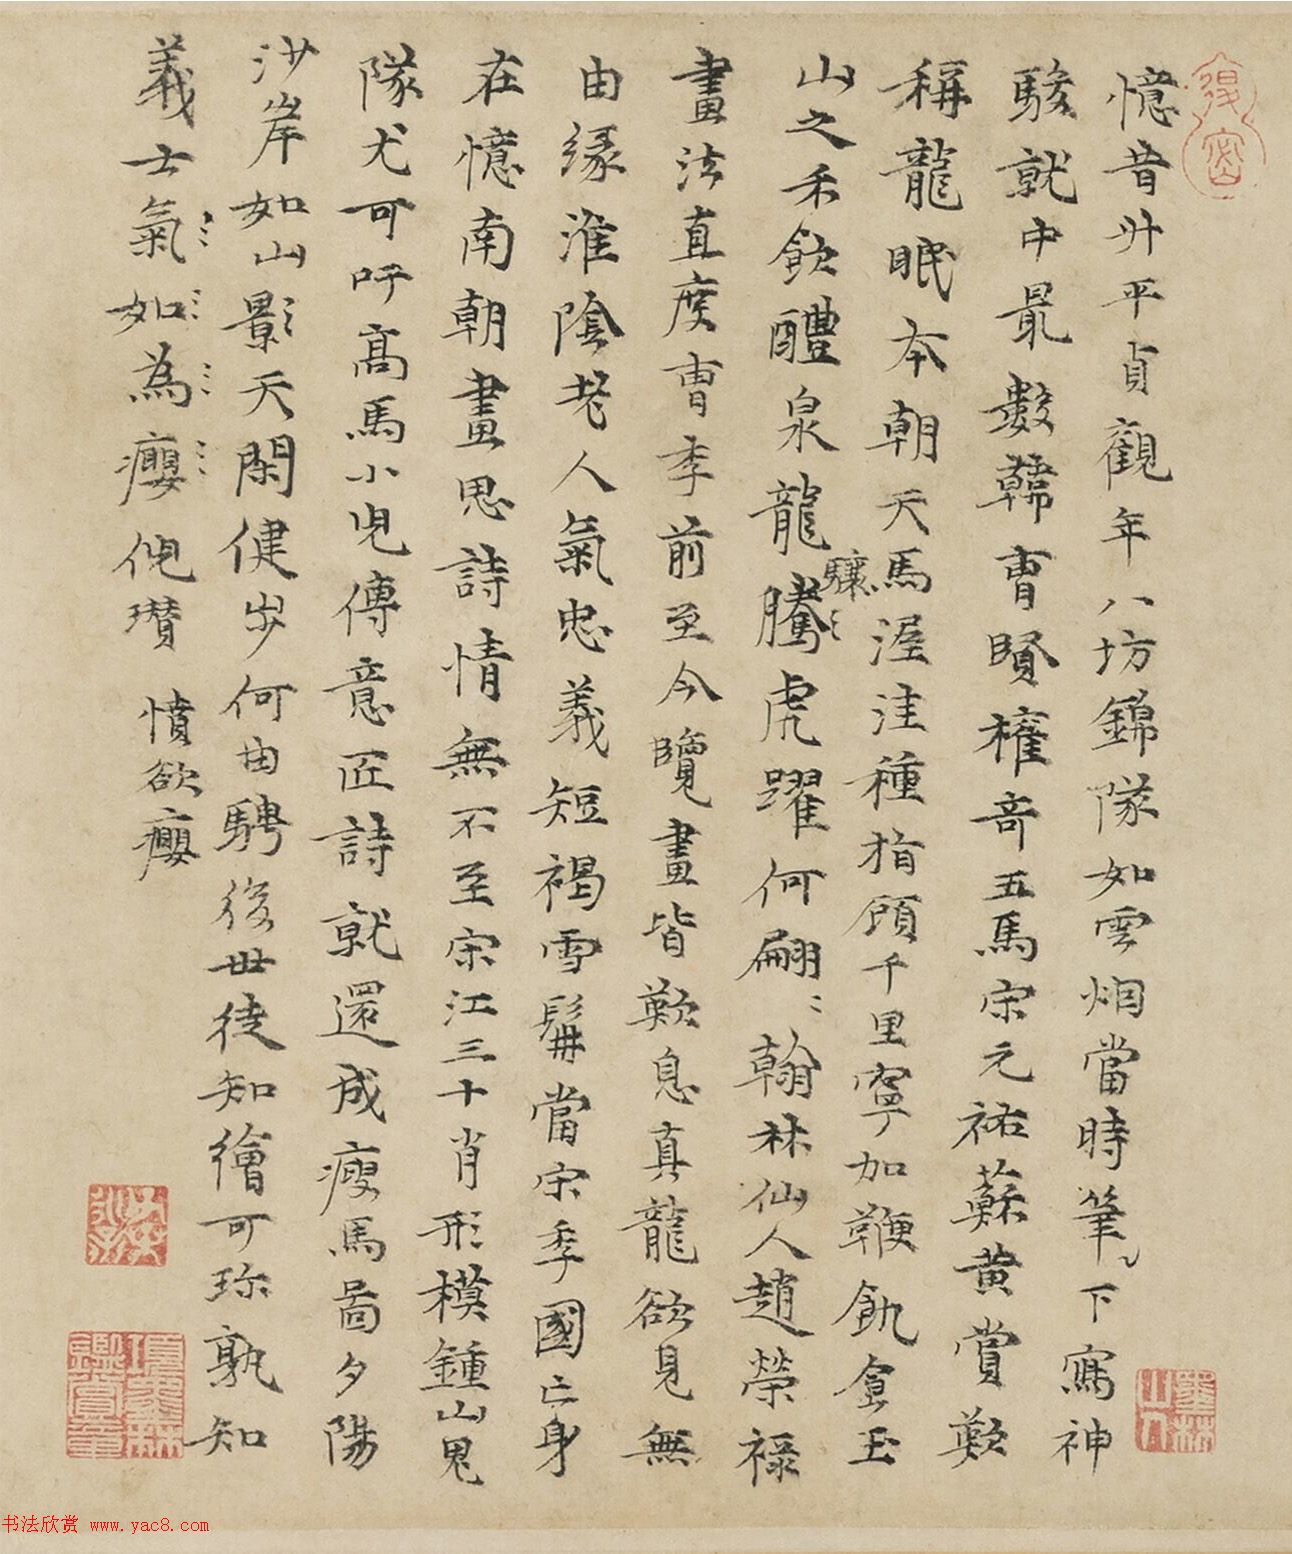 憶昔升平貞觀年八坊錦隊如雲烟當時筆下寫神
駿就中最數韓曹賢權奇五馬宋元祐蘇黄賞歎
稱龍眠本朝天馬渥洼種指顧千里寧加鞭飢食玉
山之禾飲醴泉龍騰虎躍何翩〻翰林仙人趙榮禄
驤
畫法直度曹李前至今覽畫皆歎息真龍欲見無
由緣淮陰老人氣忠義短褐雪髯當宋季國亡身
在憶南朝畫思詩情無不至宋江三十肖形模鍾山鬼
隊尤可吁高馬小兒傳意匠詩就還成瘦馬啚夕陽
沙岸如山影天閑健步何由騁後世徒知繪可珎孰知
義士氣如為癭他瓚 憤欲癭
項墨林鑑賞章
墨林山人
书法欣赏 www.yac8.com